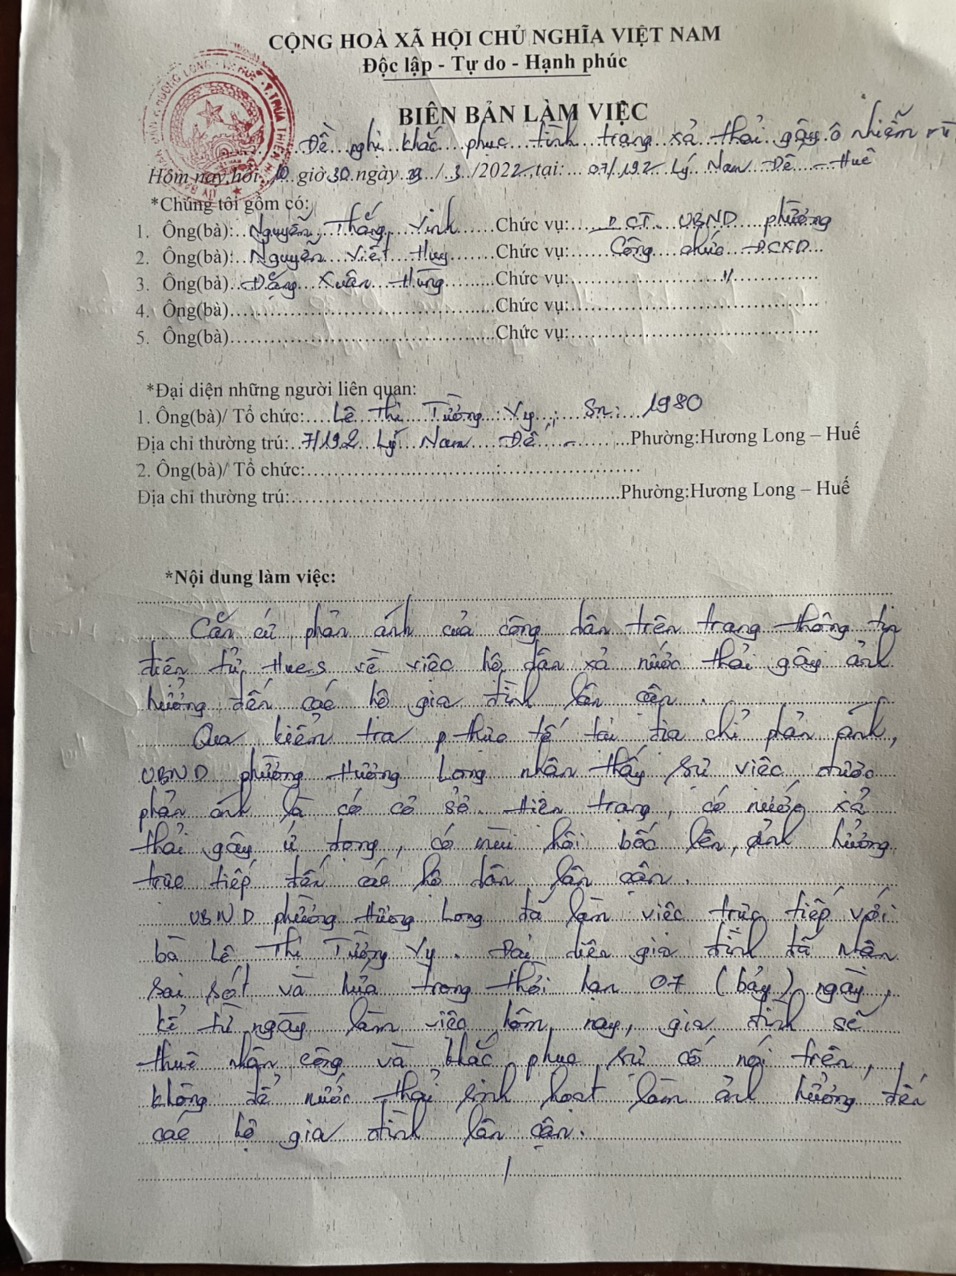 CỘNG HOÀ XÃ HỘI CHỦ NGHĨA VIỆT NAM
Độc lập - Tự do - Hạnh phúc
BIÊN BẢN LÀM VIỆC
Đề nghị khắc phục tình trạng xả thải gây ô nhiễm
Hôm nay, hồi 10 giờ 30 ngày /3/2022 tại: 07/192 Lý Nam Đế - Huế
*Chúng tôi gồm có:
1. Ông(bà): Nguyễn Thắng Vinh Chức vụ: PCT. UBND phường
2. Ông(bà): Nguyễn Viết Huy Chức vụ: Công chức ĐCXD
3. Ông(bà): Đặng Xuân Hùng Chức vụ: "
4. Ông(bà) Chức vụ:
5. Ông(bà) Chức vụ:
*Đại diện những người liên quan:
1. Ông(bà)/ Tổ chức: Lê Thị Tường Vy ; Sn: 1980
Địa chỉ thường trú: 7/192 Lý Nam Đế - Phường:Hương Long – Huế
2. Ông(bà)/ Tổ chức: :
Địa chỉ thường trú: Phường:Hương Long – Huế
*Nội dung làm việc:
Căn cứ phản ánh của công dân trên trang thông tin
điện tử HueS về việc hộ dân xả nước thải gây ảnh
hưởng đến các hộ gia đình lân cận.
Qua kiểm tra thực tế tại địa chỉ phản ánh,
UBND phường Hương Long nhận thấy sự việc được
phản ánh là có cơ sở. Hiện trạng, có nước xả
thải gây ứ đọng, có mùi hôi bốc lên, ảnh hưởng
trực tiếp đến các hộ dân lân cận.
UBND phường Hương Long đã làm việc trực tiếp với
bà Lê Thị Tường Vy. Đại diện gia đình đã nhận
sai sót và hứa trong thời hạn 07 (bảy) ngày,
kể từ ngày làm việc hôm nay, gia đình sẽ
thuê nhân công và khắc phục sự cố nói trên,
không để nước thải sinh hoạt làm ảnh hưởng đến
các hộ gia đình lân cận.
/